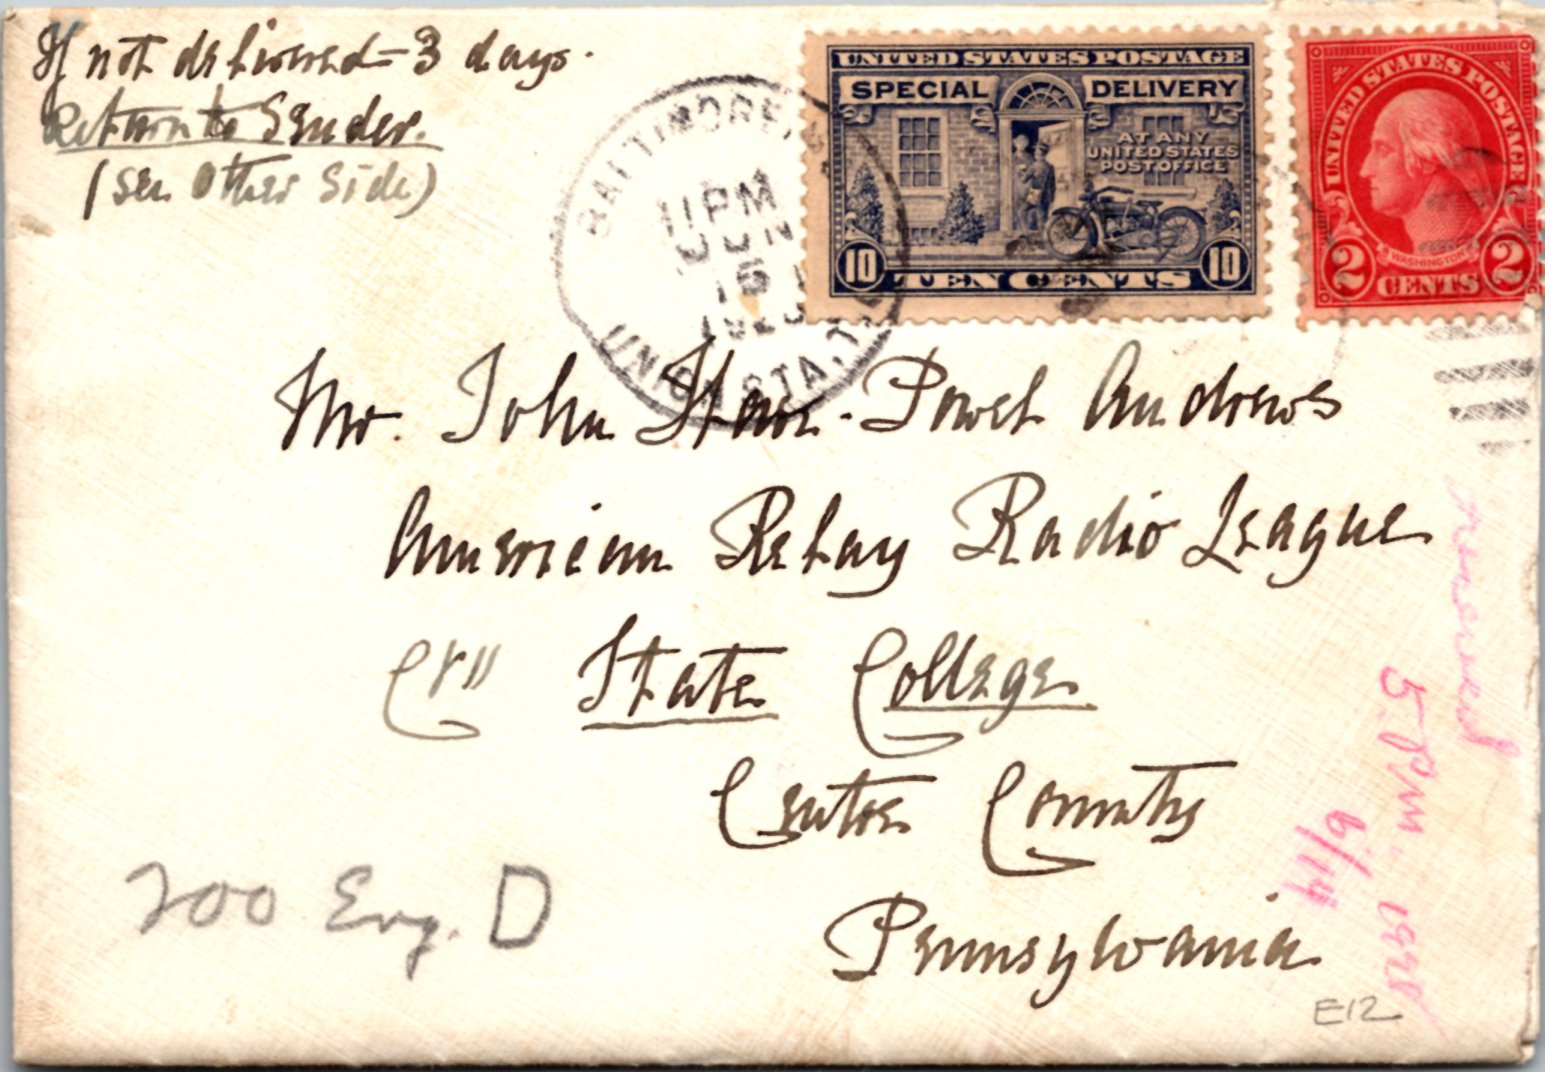 If not delivered - 3 days.
Return to Sender.
(see Other Side)
BALTIMORE
11PM
JUN
15
UNION STA.
UNITED STATES POSTAGE
SPECIAL DELIVERY
AT ANY
UNITED STATES
POST OFFICE
10 TEN CENTS 10
UNITED STATES POSTAGE
WASHINGTON
2 CENTS 2
Mr. John Howe-Powel Andrews
American Relay Radio League
State College
Centre County
Pennsylvania
200 Eng. D
received
5 PM.
E12